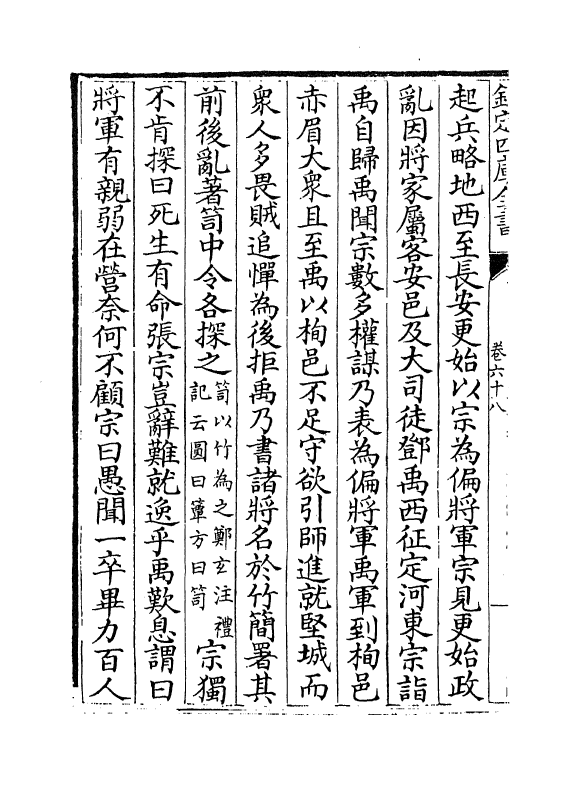 欽定四庫全書
卷六十八
起兵略地西至長安更始以宗為偏將軍宗見更始政
亂因將家屬客安邑及大司徒鄧禹西征定河東宗詣
禹自歸禹聞宗數多權謀乃表為偏將軍禹軍到栒邑
赤眉大衆且至禹以栒邑不足守欲引師進就堅城而
衆人多畏賊追憚為後拒禹乃書諸將名於竹簡署其
前後亂著笥中令各探之笥以竹為之鄭玄注禮記云圓曰簞方曰笥宗獨
不肯探曰死生有命張宗豈辭難就逸乎禹歎息謂曰
將軍有親弱在營奈何不顧宗曰愚聞一卒畢力百人